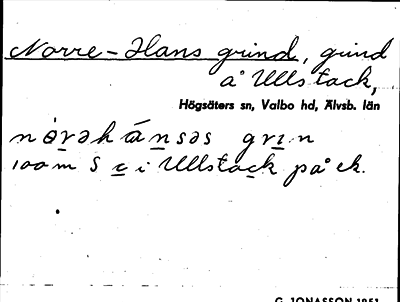 Norre-Hans grind, grind
å Ullstack,
Högsäters sn, Valbo hd, Älvsb. län
nørəhánsəs grin
100 m S c i Ullstack på ek.
G. JONASSON 1951